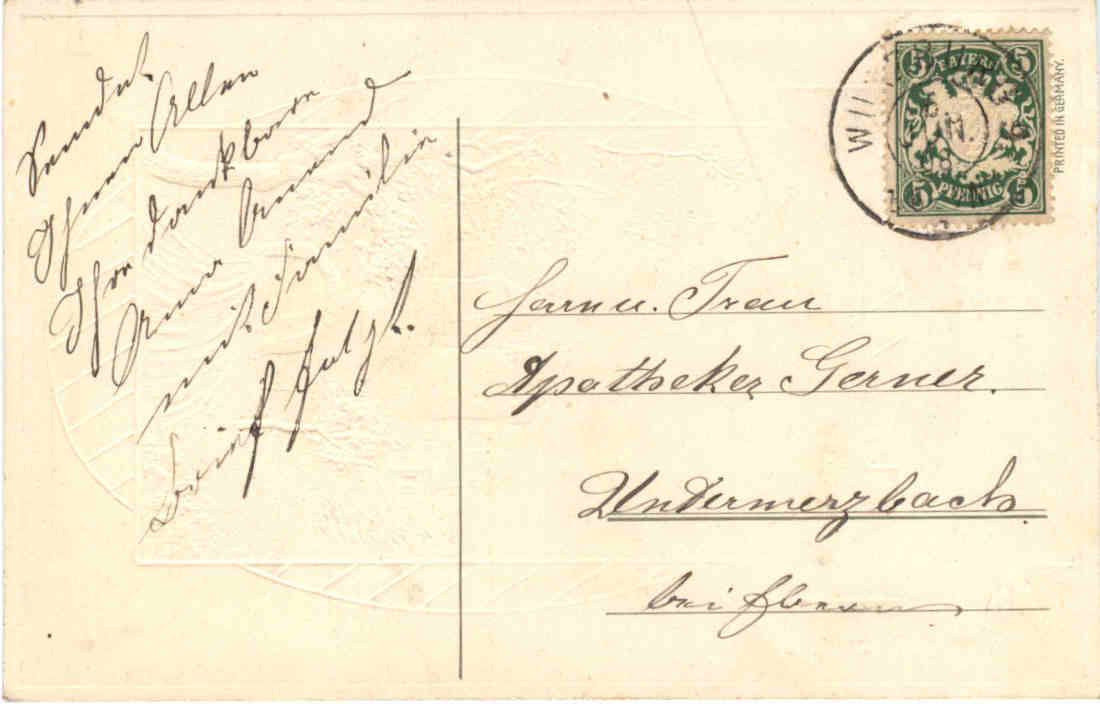 Sendet
Ihnen Allen
Ihre dankbare
Anna Amend
mit Familie
Brief folgt.
5 BAYERN 5
5 PFENNIG 5
PRINTED IN GERMANY.
Herrn u. Frau
Apotheker Gerner.
Untermerzbach
bei Ebern